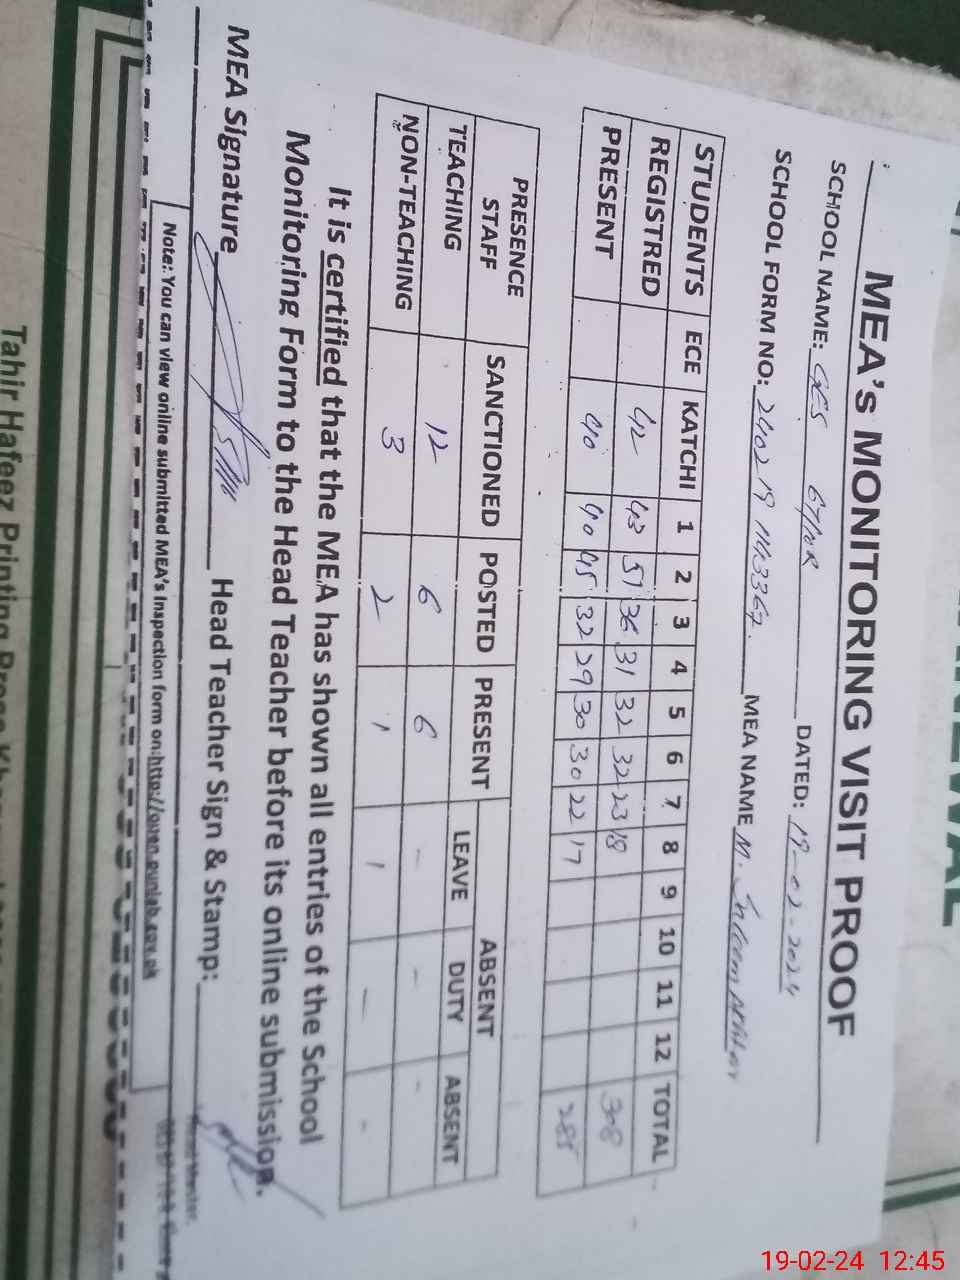 MEA's MONITORING VISIT PROOF
SCHOOL NAME: GES DATED: 19-02-2024
SCHOOL FORM NO: MEA NAME M.
STUDENTS ECE KATCHI 1 2 3 4 5 6 7 8 9 10 11 12 TOTAL
REGISTRED 42 43 51 36 31 32 32 23 18 308
PRESENT 40 40 45 32 29 30 30 22 17 285
PRESENCE STAFF SANCTIONED POSTED PRESENT ABSENT
LEAVE DUTY ABSENT
TEACHING 12 6 6 - - -
NON-TEACHING 3 2 1 1 - -
It is certified that the MEA has shown all entries of the School
Monitoring Form to the Head Teacher before its online submission.
MEA Signature Head Teacher Sign & Stamp:
Note:. You can view online submitted MEA's Inspection form on:http://open.punjab.gov.pk
Tahir Hafeez Printing Press
19-02-24 12:45